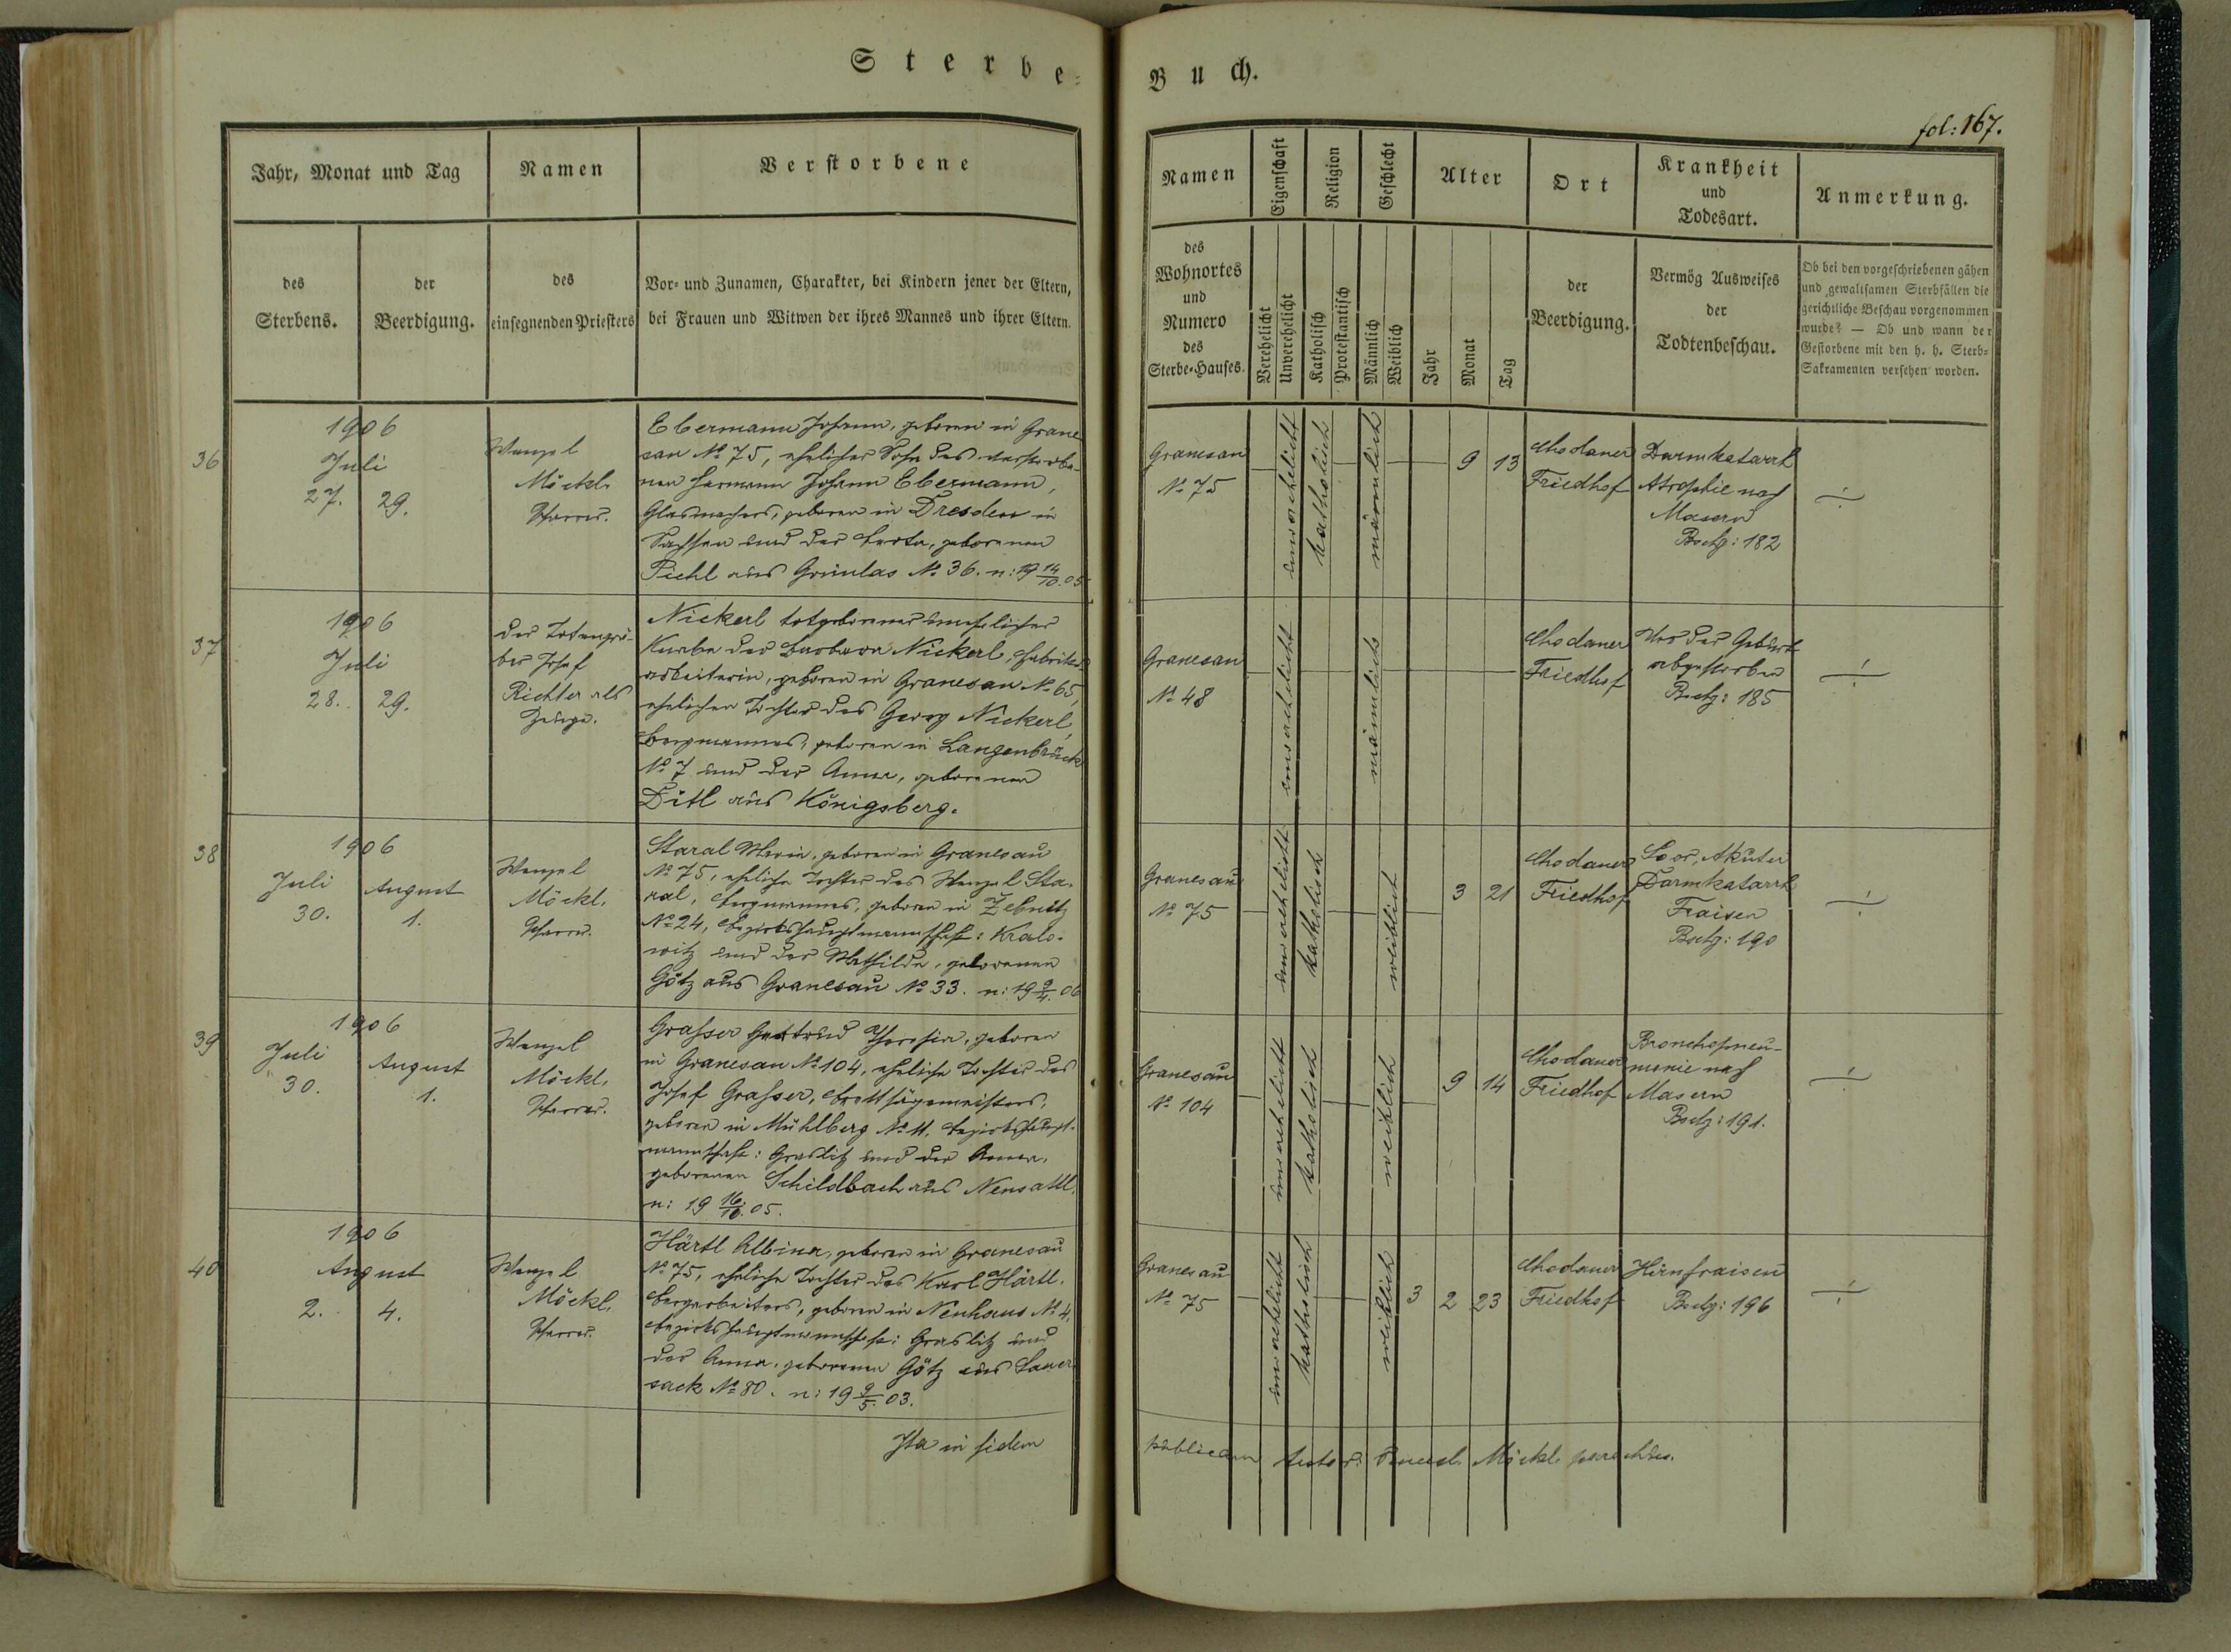 Sterbe-
Buch.
fol: 167.
Jahr, Monat und Tag
Namen
Verstorbene
des
Sterbens.
der
Beerdigung.
des
einsegnenden Priesters
Vor- und Zunamen, Charakter, bei Kindern jener der Eltern,
bei Frauen und Witwen der ihres Mannes und ihrer Eltern.
Namen
Eigenschaft
Religion
Geschlecht
Alter
Ort
Krankheit
und
Todesart.
Anmerkung.
des
Wohnortes
und
Numero
des
Sterbe-Hauses.
Verehelicht
Unverehelicht
Katholisch
Protestantisch
Männlich
Weiblich
Jahr
Monat
Tag
der
Beerdigung.
Vermög Ausweises
der
Todtenbeschau.
Ob bei den vorgeschriebenen gähen
und gewaltsamen Sterbfällen die
gerichtliche Beschau vorgenommen
wurde? — Ob und wann der
Gestorbene mit den h. h. Sterb-
Sakramenten versehen worden.
36
1906
Juli
27. 29.
Wenzel
Möckl.
Pfarrer.
Ebermann Johann, geboren in Grane-
sau No 75, ehelicher Sohn des verstorbe-
nen Hermann Johann Ebermann,
Glasmachers, geboren in Dresden in
Sachsen und der Berta, geborenen
Piehl aus Grünlas No 36. n: 19 14/10. 05
Granesau
No 75
unverehelicht
katholisch
männlich
9 13
Chodauer
Friedhof
Darmkatarrh
Atrophie nach
Masern
Bschg: 182
37
1906
Juli
28. 29.
Der Totengrä-
ber Josef
Richter als
Zeuge.
Nickerl totgeborener unehelicher
Knabe der Barbara Nickerl, Fabriks-
arbeiterin, geboren in Granesau No 65,
ehelichen Tochter des Georg Nickerl,
Bergmannes, geboren in Langenbrück
No 7 und der Anna, geborenen
Ditl aus Königsberg.
Granesau
No 48
unverehelicht
männlich
Chodauer
Friedhof
Vor der Geburt
abgestorben
Bschg: 185
38
1906
Juli August
30. 1.
Wenzel
Möckl.
Pfarrer.
Staral Maria, geboren in Granesau
No 75, eheliche Tochter des Wenzel Sta-
ral, Bergmannes, geboren in Zebnitz
No 24, Bezirkshauptmannschaft: Kralo-
witz und der Mathilde, geborenen
Götz aus Granesau No 33. n: 19 9/4. 06
Granesau
No 75
unverehelicht
katholisch
weiblich
3 21
Chodauer
Friedhof
Soor, Akuter
Darmkatarrh
Fraisen
Bschg: 190
39
1906
Juli August
30. 1.
Wenzel
Möckl.
Pfarrer.
Grasser Gertrud Theresia, geboren
in Granesau No 104, eheliche Tochter des
Josef Grasser, Brettsägemeisters,
geboren in Mühlberg No 11, Bezirkshaupt-
mannschaft: Graslitz und der Anna,
geborenen Schildbach aus Neusattl.
n: 19 16/10. 05.
Granesau
No 104
unverehelicht
katholisch
weiblich
9 14
Chodauer
Friedhof
Bronchopneu-
monie nach
Masern
Bschg: 191.
40
1906
August
2. 4.
Wenzel
Möckl.
Pfarrer.
Härtl Albina, geboren in Granesau
No 75, eheliche Tochter des Karl Härtl,
Bergarbeiters, geboren in Neuhaus No 4,
Bezirkshauptmannschaft: Graslitz und
der Anna, geborenen Götz aus Lauer-
sack No 80. n: 19 9/5. 03.
Granesau
No 75
unverehelicht
katholisch
weiblich
3 2 23
Chodauer
Friedhof
Hirnfraisen
Bschg: 196
Ita in fidem
publicam Möckl parochus.